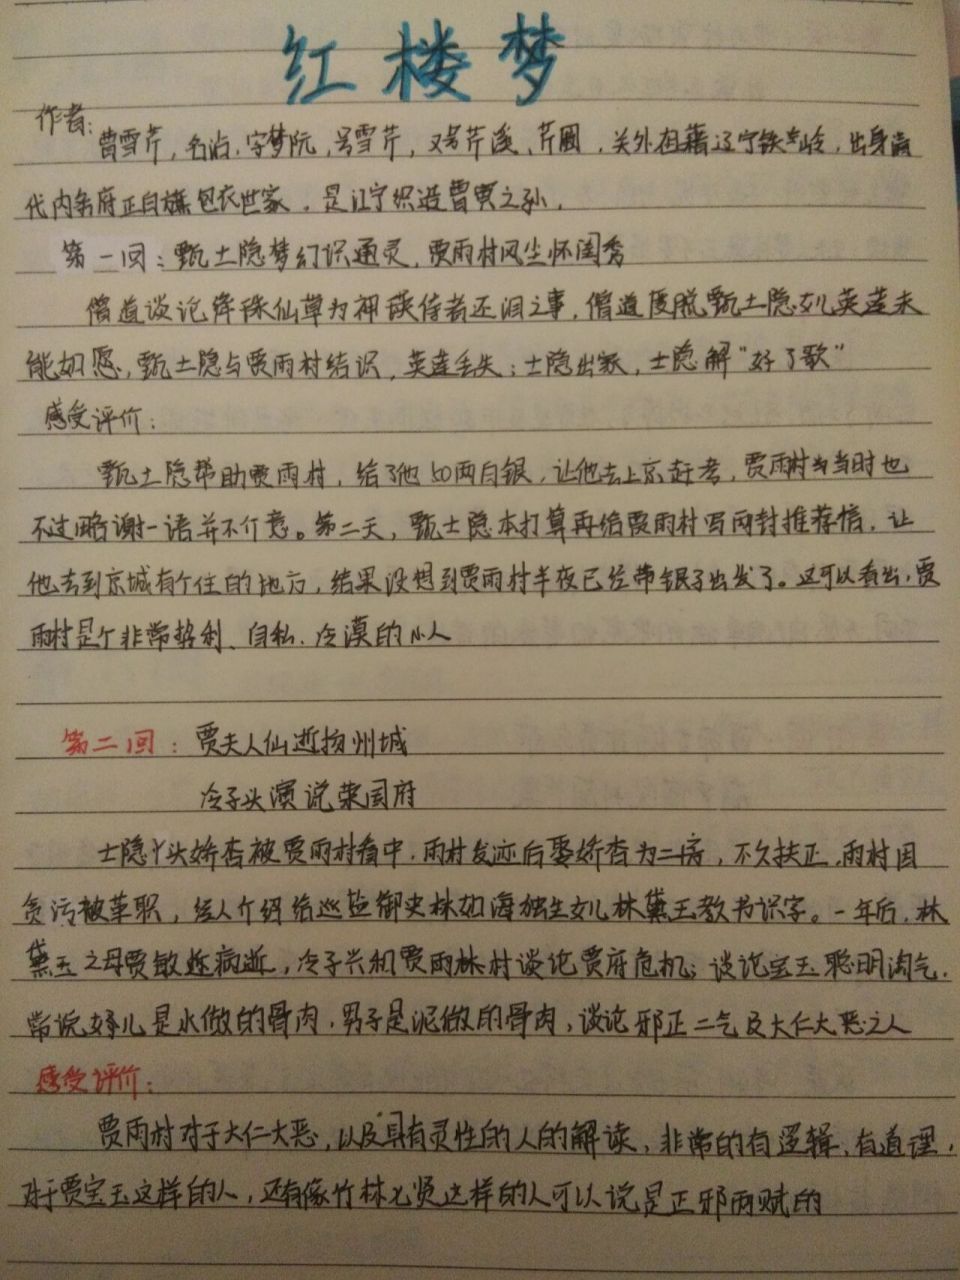 红楼梦
作者:
曹雪芹,名沾,字梦阮,号雪芹,又号芹溪、芹圃,关外祖籍辽宁铁岭,出身清
代内务府正白旗包衣世家,是江宁织造曹寅之孙,
第一回:甄士隐梦幻识通灵,贾雨村风尘怀闺秀
僧道谈论绛珠仙草为神瑛侍者还泪之事,僧道度脱甄士隐女儿英莲未
能如愿,甄士隐与贾雨村结识,英莲丢失;士隐出家,士隐解"好了歌"
感受评价:
甄士隐帮助贾雨村,给了他50两白银,让他去上京赶考,贾雨村当时也
不过略谢一语并不介意。第二天,甄士隐本打算再给贾雨村写两封推荐信,让
他去到京城有个住的地方,结果没想到贾雨村半夜已经带银子出发了。这可以看出,贾
雨村是个非常势利、自私、冷漠的小人
第二回:贾夫人仙逝扬州城
冷子兴演说荣国府
士隐丫头娇杏被贾雨村看中,雨村发迹后娶娇杏为二房,不久扶正,雨村因
贪污被革职,经人介绍给巡盐御史林如海独生女儿林黛玉教书识字。一年后,林
黛玉之母贾敏病逝,冷子兴和贾雨村谈论贾府危机;谈论宝玉聪明淘气,
常说女儿是水做的骨肉,男子是泥做的骨肉,谈论邪正二气及大仁大恶之人
感受评价:
贾雨村对于大仁大恶,以及具有灵性的人的解读,非常的有逻辑、有道理,
对于贾宝玉这样的人,还有像竹林七贤这样的人可以说是正邪两赋的